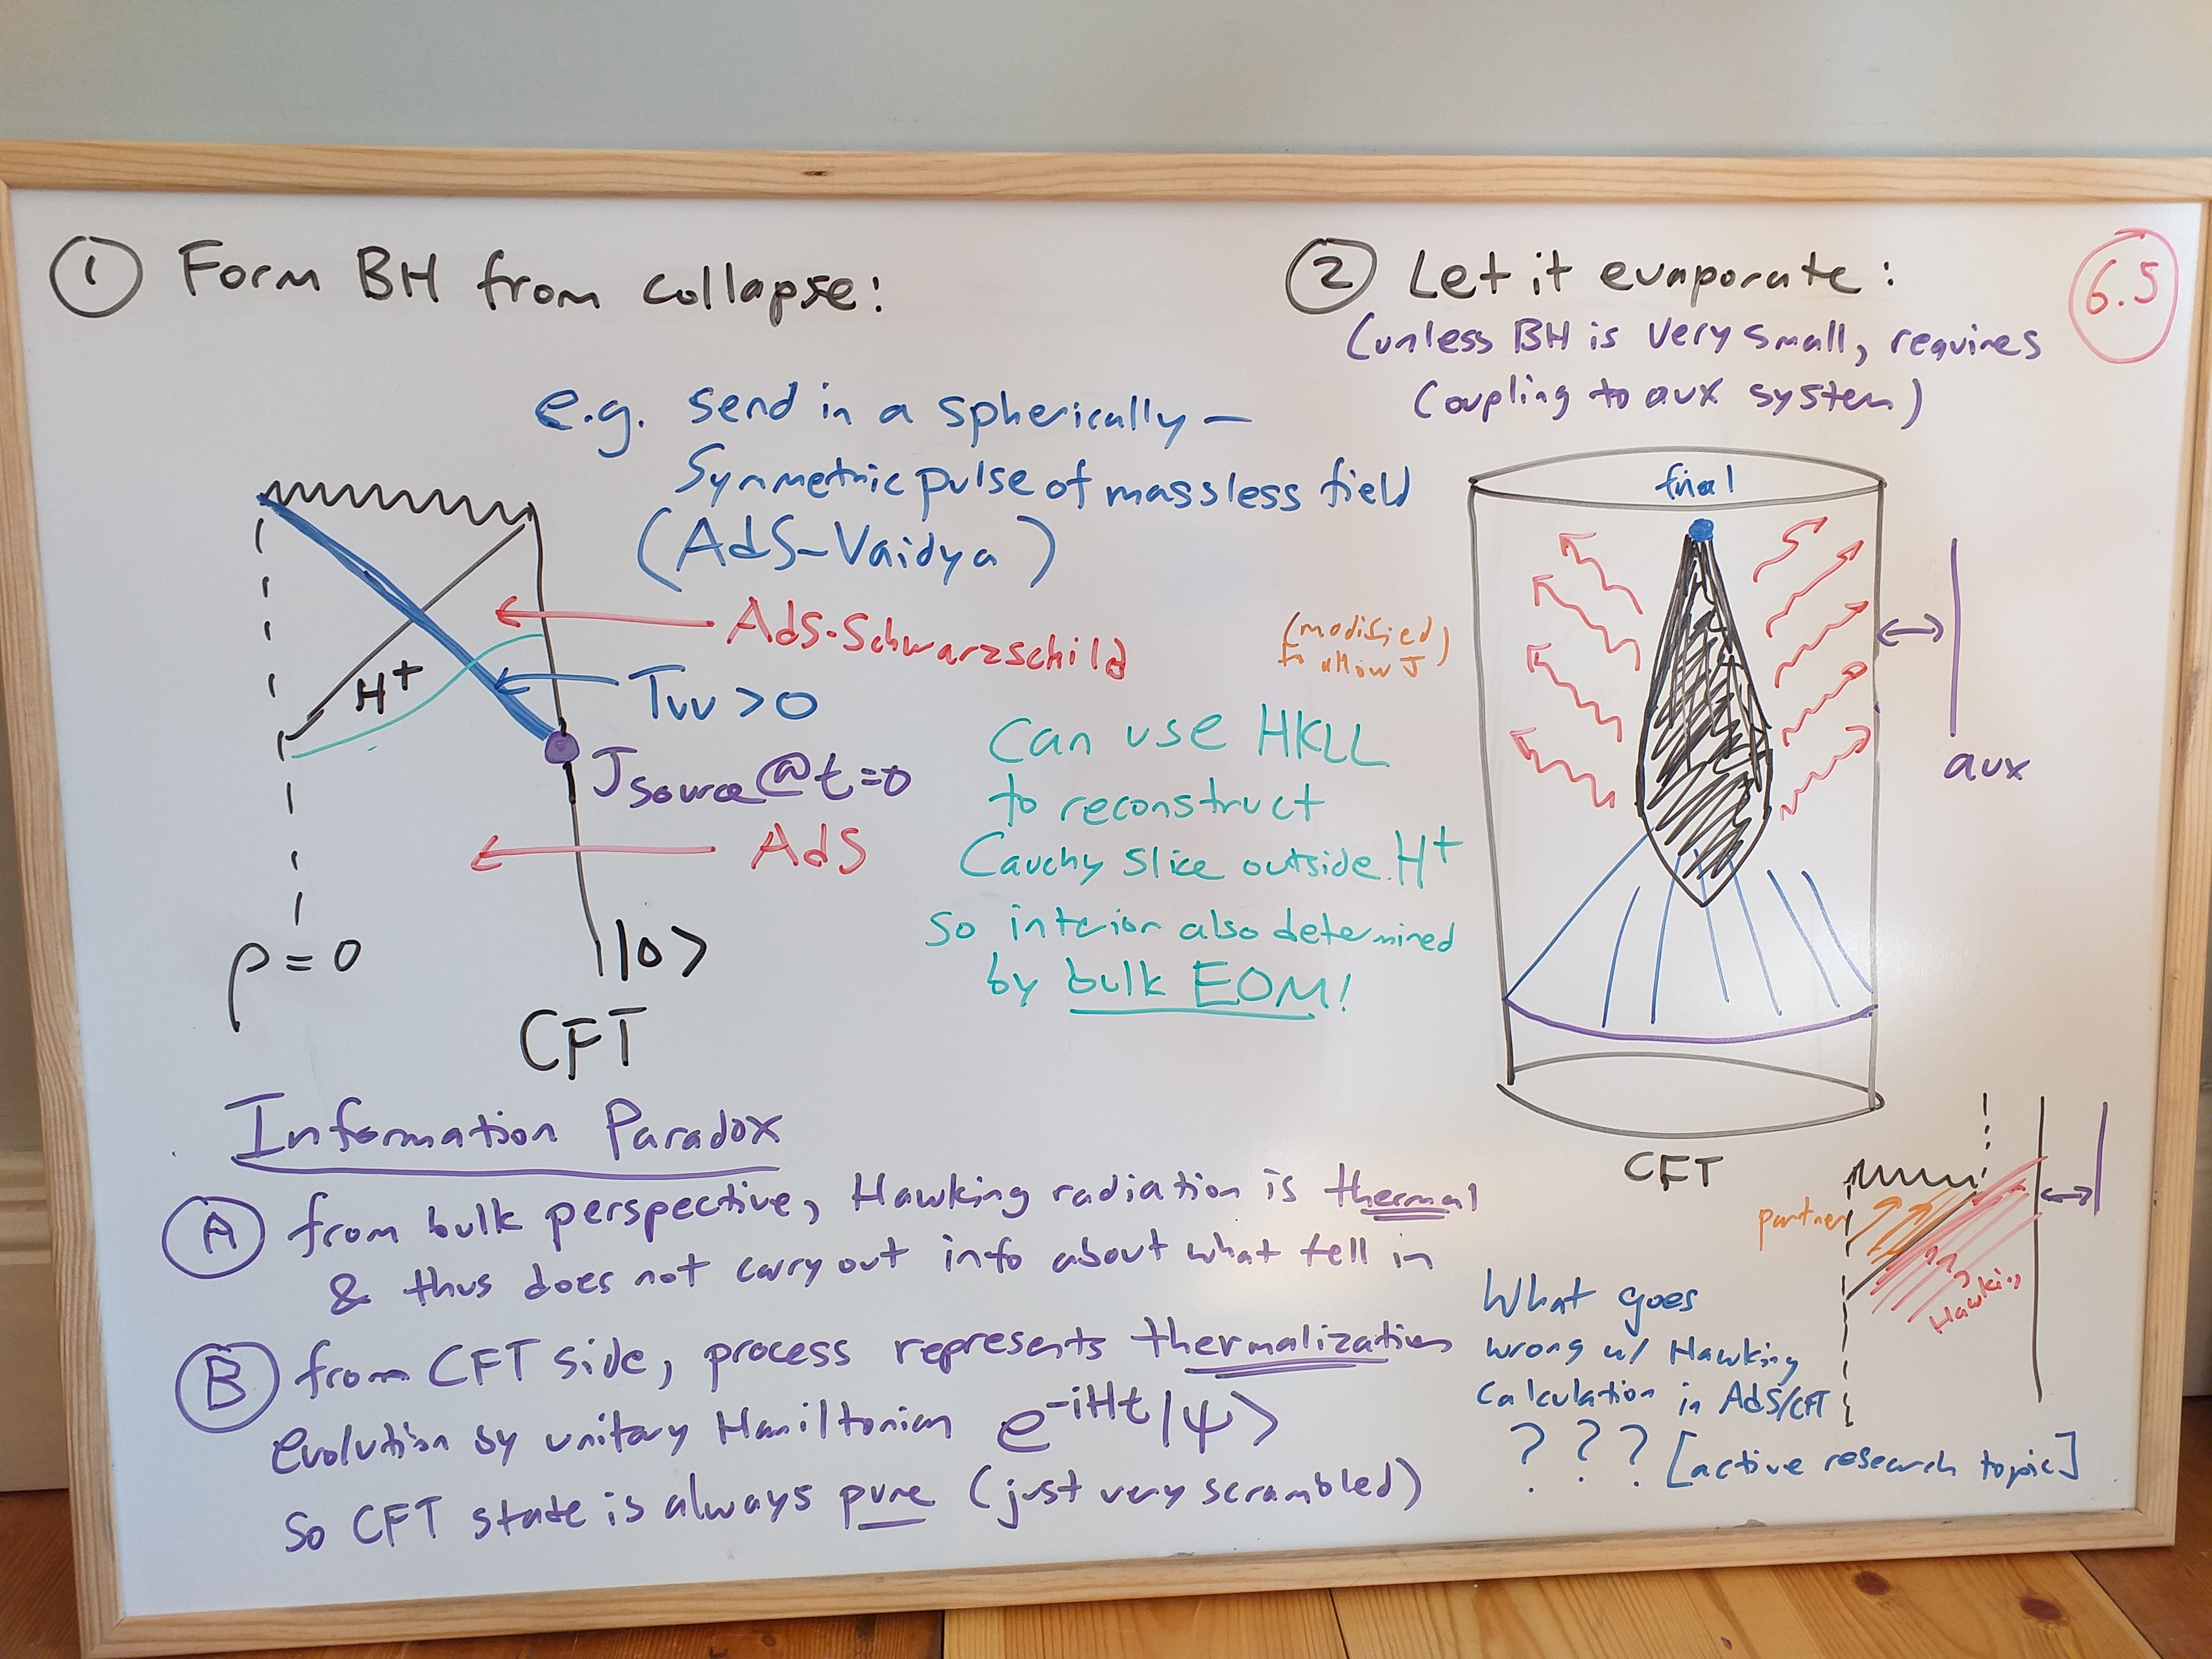 ① Form BH from collapse:
e.g. send in a spherically-
symmetric pulse of massless field
(AdS-Vaidya)
AdS-Schwarzschild
H+
Tvv > 0
Jsource@t=0
AdS
|0>
ρ = 0
CFT
(modified
to allow J)
Can use HKLL
to reconstruct
Cauchy slice outside H+
so interior also determined
by bulk EOM!
② Let it evaporate:
(unless BH is very small, requires
coupling to aux system)
6.5
final
aux
CFT
Information Paradox
Ⓐ from bulk perspective, Hawking radiation is thermal
& thus does not carry out info about what fell in
Ⓑ from CFT side, process represents thermalization
evolution by unitary Hamiltonian e^-iHt|ψ>
so CFT state is always pure (just very scrambled)
partner
Hawking
What goes
wrong w/ Hawking
calculation in AdS/CFT
? ? ? [active research topic]